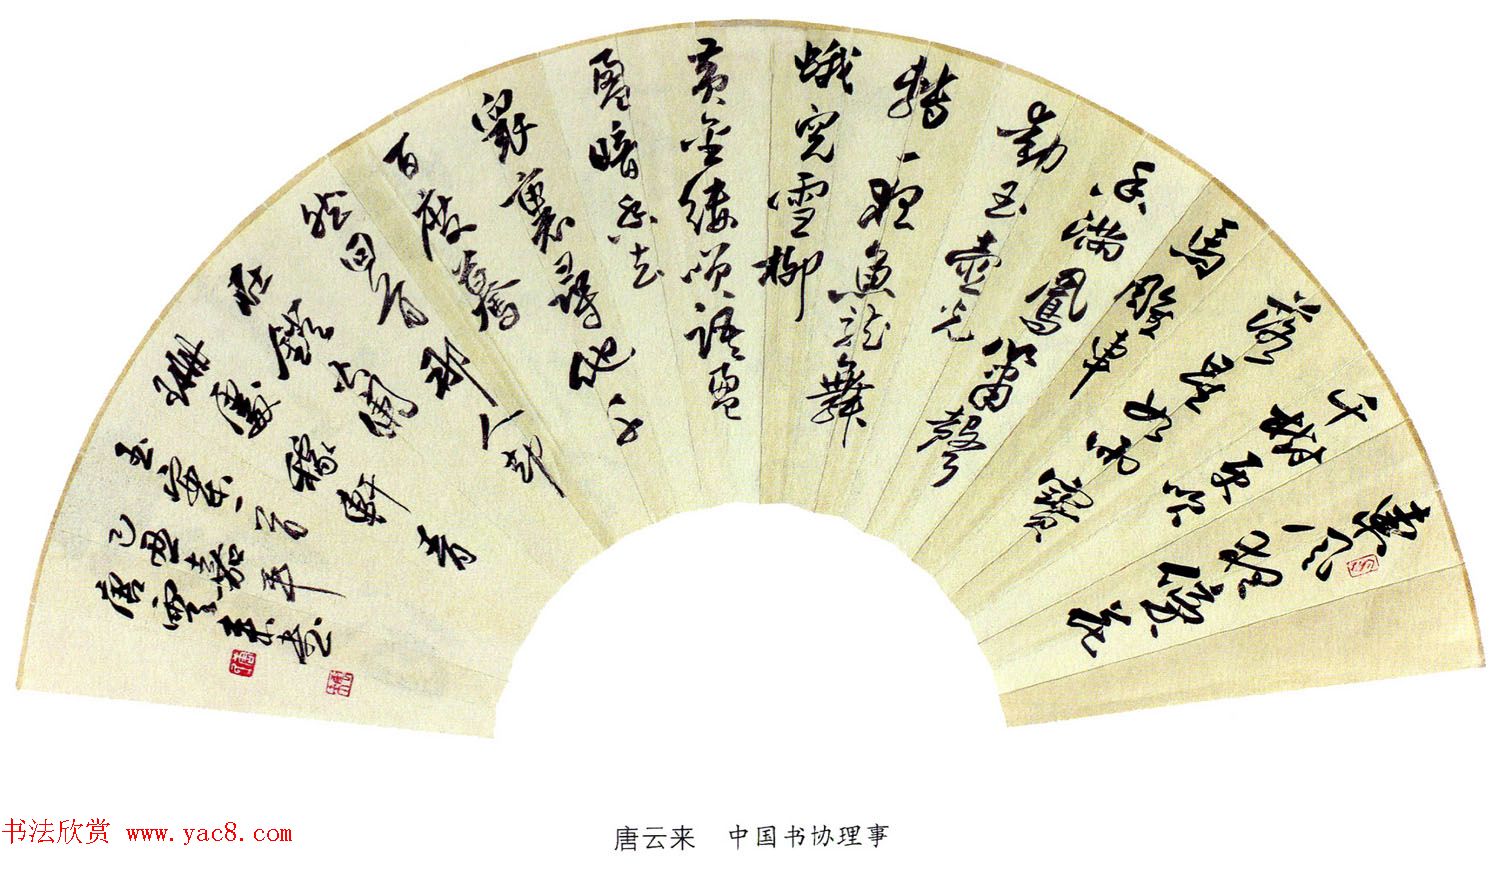 東風夜放花
千樹更吹
落星如雨寶
馬雕車
香滿鳳簫聲
動玉壺光
轉一夜魚龍舞
蛾兒雪柳
黃金縷笑語盈
盈暗香去
眾裏尋他千
百度驀
然回首那人卻
在鐙火闌
珊處稼軒青
玉案一首
己丑嘉平
唐雲來書
唐云来 中国书协理事
书法欣赏 www.yac8.com